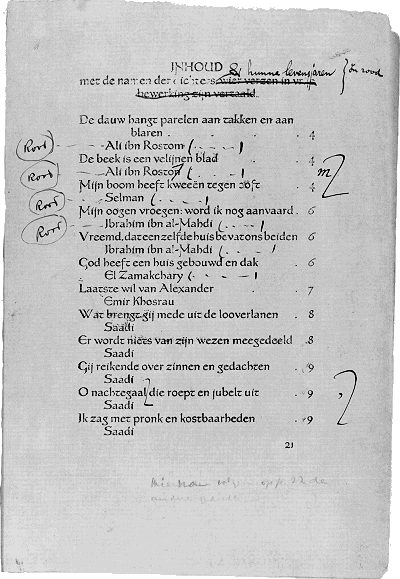 INHOUD & hunne levensjaren } in rood
met de namen der dichters wier verzen in vrije
bewerking zijn vertaald.
De dauw hangt parelen aan takken en aan
blaren . . . . 4
Rood Ali ibn Rostom ( . - - - )
De beek is een velijnen blad . . 4
Rood Ali ibn Rostom ( . - - - )
Mijn boom heeft kweeën tegen zoft . 4
Rood Selman ( . - - - )
Mijn oogen vroegen: word ik nog aanvaard . 6
Rood Ibrahim ibn al-Mahdi ( . - - - )
Vreemd, dat eenzelfde huis bevat ons beiden 6
Ibrahim ibn al-Mahdi ( . - - - )
God heeft een huis gebouwd en dak . 6
El Zamakchary ( - - - )
Laatste wil van Alexander . 7
Emir Khosrau
Wat brengt gij mede uit de looverlanen . 8
Saadi
Er wordt niets van zijn wezen meegedeeld . 8
Saadi
Gij reikende over zinnen en gedachten . 9
Saadi
O nachtegaal die roept en jubelt uit . 9
Saadi
Ik zag met pronk en kostbaarheden . 9
Saadi
21